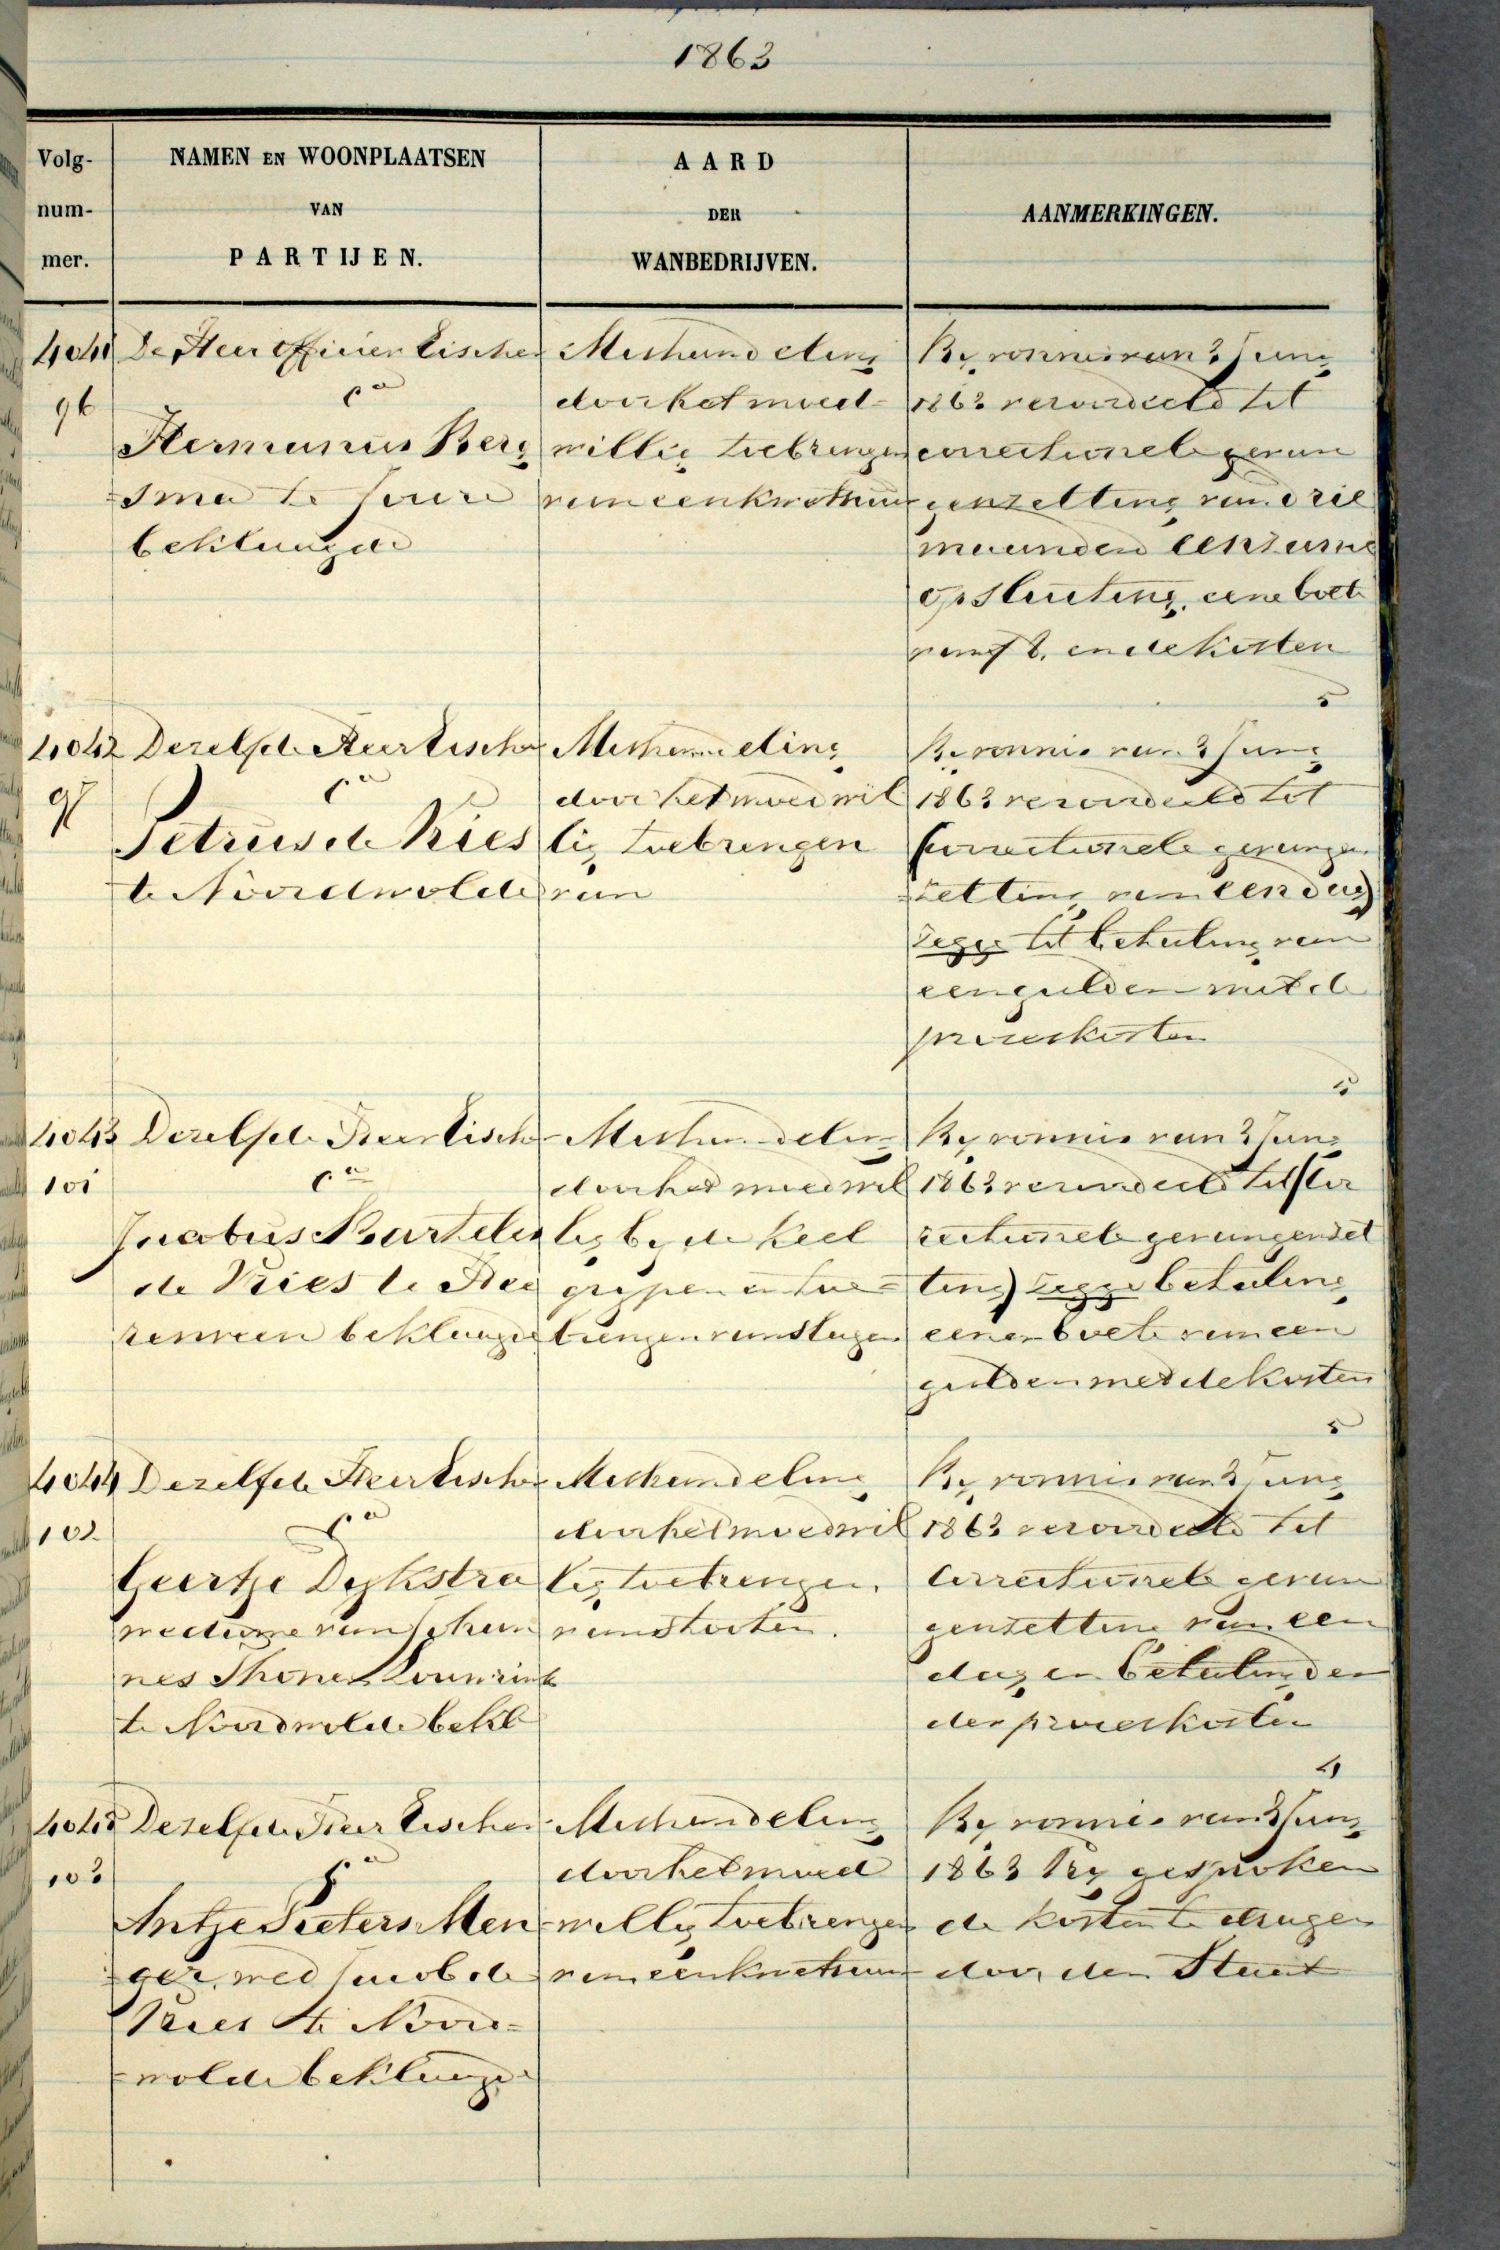 1863
Volg-
num-
mer.
NAMEN EN WOONPLAATSEN
VAN
PARTIJEN.
AARD
DER
WANBEDRIJVEN.
AANMERKINGEN.
4041
96
De Heer Officier Eischer
ca
Hermanus Berg
=sma te Joure
beklaagde
Mishandeling
door het moed=
willig toebrengen
van een
By vonnis van 3 Juny
1863 veroordeeld tot
correctionele gevan
genzetting van drie
maanden eenzame
opsluiting, eene boete
van f 8. en de kosten
5
4042
97
Dezelfde Heer Eischer
ca
Petrus de Vries
te Noordwolde
Mishandeling
door het moedwil
lig toebrengen
van
By vonnis van 3 Juny
1863 veroordeeld tot
(correctionele gevangen
=zetting van een dag)
zegge tot betaling van
een gulden met de
proceskosten
5
4043
101
Dezelfde Heer Eischer
ca
Jacobus Barteles
de Vries te Hee
renveen beklaagde
Mishandeling
door het moedwil
lig by de keel
grypen en toe=
brengen van slagen
By vonnis van 3 Juny
1863 veroordeeld tot (Cor
rectionele gevangenzet
ting) zegge betaling
eener boete van een
gulden met de kosten
5
4044
102
Dezelfde Heer Eischer
ca
Geertje Dykstra
weduwe van Johan
nes Thones
te Noordwolde bekl
Mishandeling
door het moedwil
lig toebrengen
van stooten.
By vonnis van 3 Juny
1863 veroordeeld tot
Correctionele gevan
genzetting van een
dag en betaling der
der proceskosten
4
4045
103
Dezelfde Heer Eischer
ca
Antje Pieters Men
=ger, wed Jacob de
Vries te Noord=
=wolde beklaagde
Mishandeling
door het moed
=willig toebrengen
van een
By vonnis van 3 Juny
1863 Vry gesproken
de kosten te dragen
door den Staat